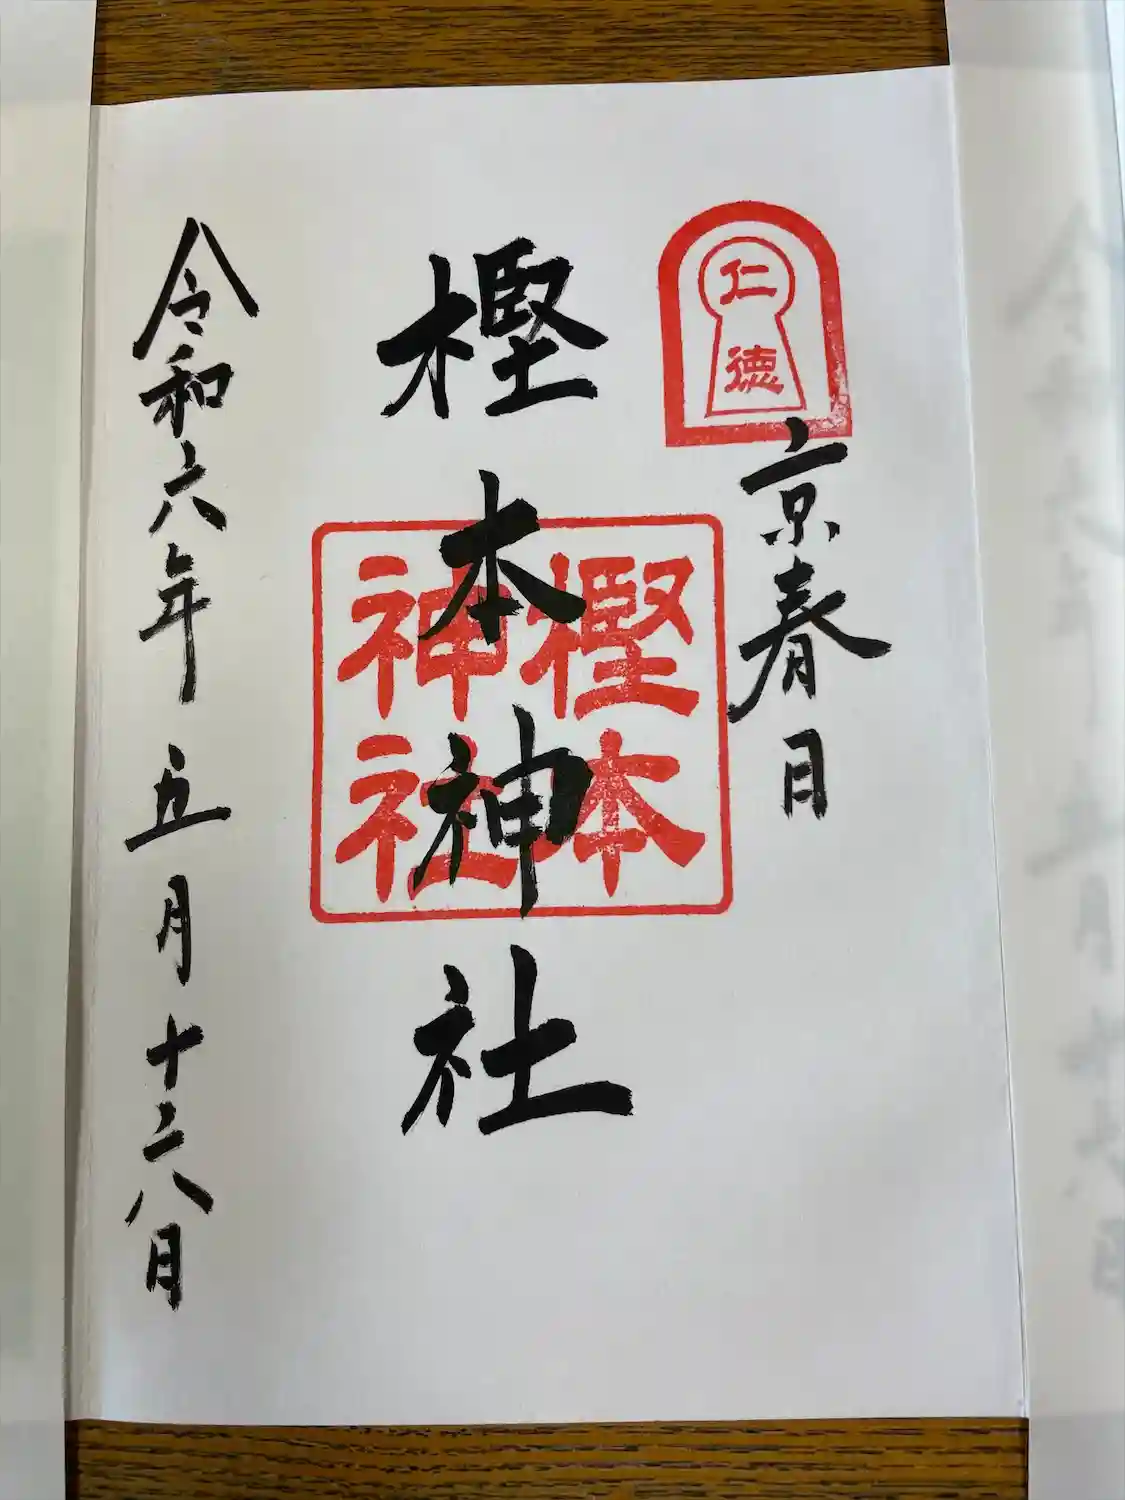 仁徳
京春日
樫本神社
樫本
神社
令和六年 五月十六日